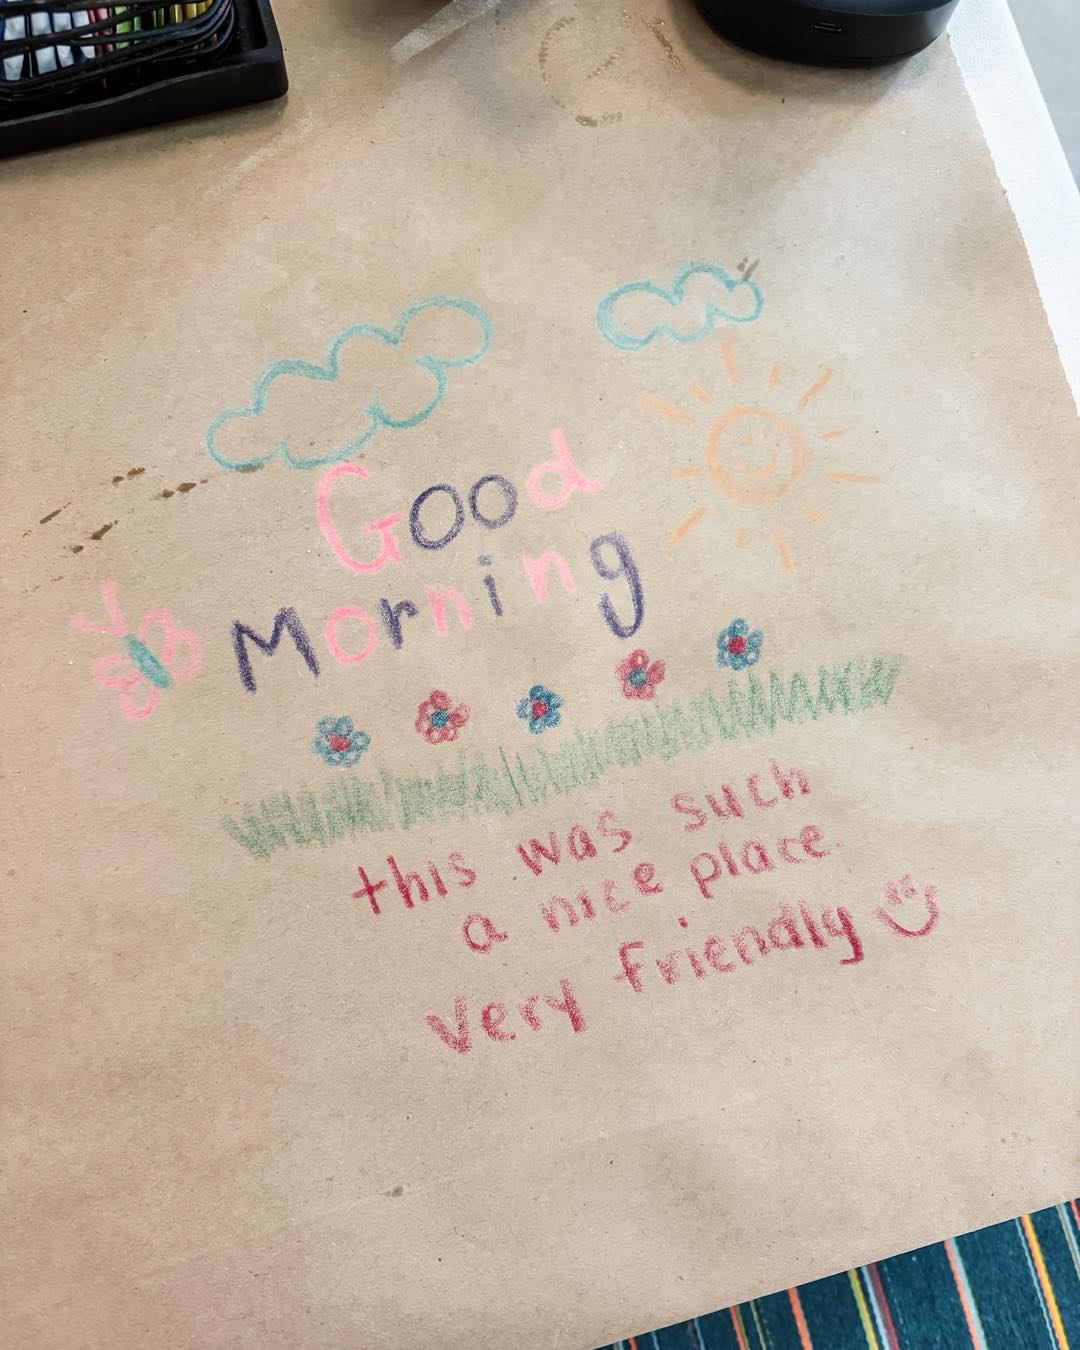 Good
Morning
this was such
a nice place.
very friendly